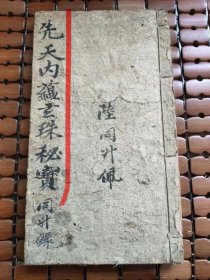 先天內蘊玄珠秘寶
同升錄
陸同升佩